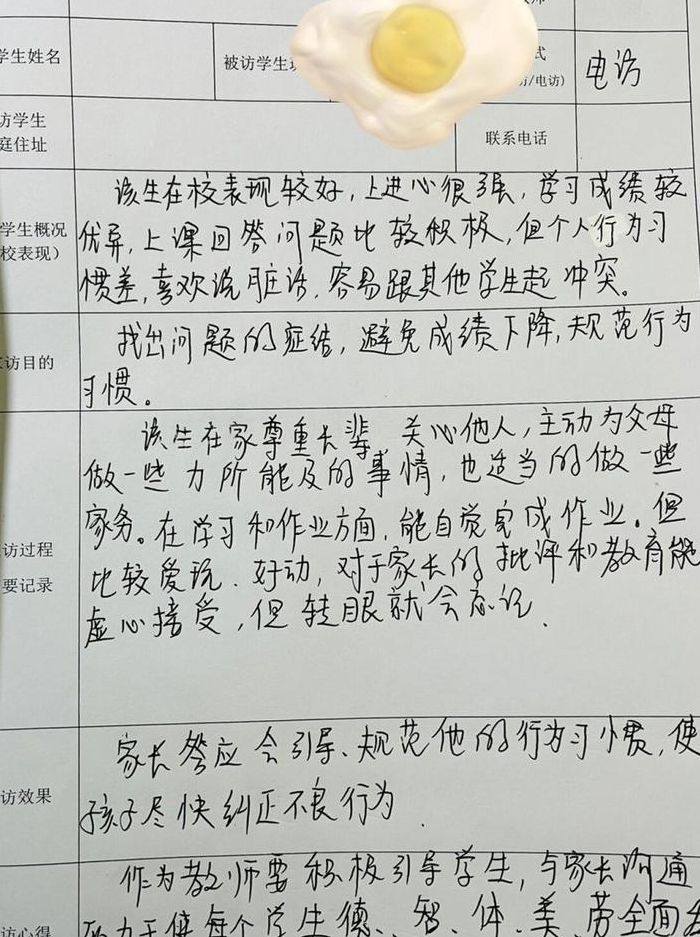 学生姓名 被访学生 式
访/电访) 电访
访学生
庭住址 联系电话
学生概况
校表现)
该生在校表现较好,上进心很强,学习成绩较
优异,上课回答问题比较积极,但个人行为习
惯差,喜欢说脏话,容易跟其他学生起冲突。
访目的
找出问题的症结,避免成绩下降,规范行为
习惯。
访过程
要记录
该生在家尊重长辈 关心他人,主动为父母
做一些力所能及的事情,也适当的做一些
家务。在学习和作业方面,能自觉完成作业。但
比较爱玩、好动,对于家长的批评和教育能
虚心接受,但转眼就会忘记.
访效果
家长答应会引导、规范他的行为习惯,使
孩子尽快纠正不良行为.
访心得
作为教师要积极引导学生,与家长沟通
力于使每个学生德、智、体、美、劳全面